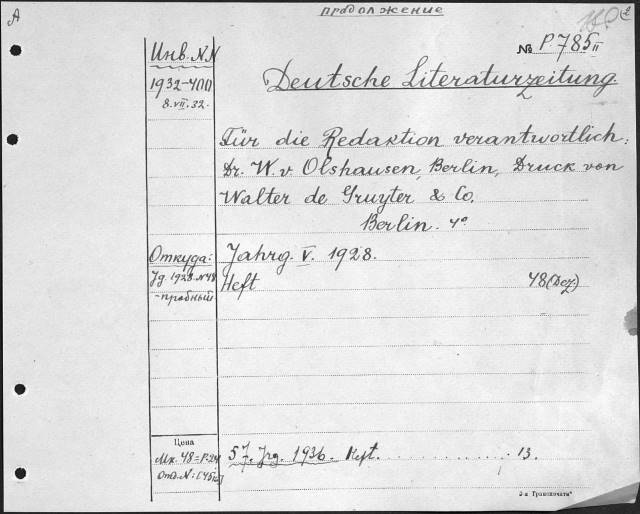 продолжение
A
Инв. NN
№ P.785II
1932-400
Deutsche Literaturzeitung.
8.VII.32.
Für die Redaktion verantwortlich:
Dr. W. v Olshausen, Berlin, Druck von
Walter de Gruyter & Co.
Berlin. 4°
Откуда:
Jahrg. V. 1928.
Jg 1928 N48
Heft 48 (Dez.)
-пробный
Цена
57. Jrg. 1936. Heft. 13.